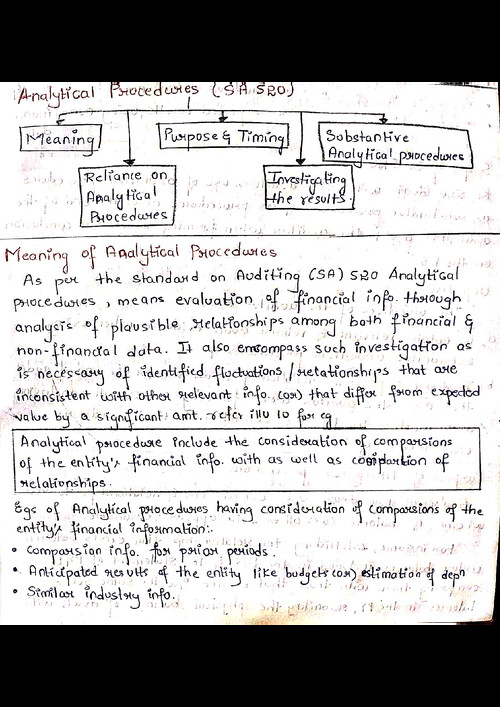 Analytical Procedures (SA 520)
Meaning
Purpose & Timing
Substantive
Analytical procedures
Reliance on
Analytical
Procedures
Investigating
the results.
Meaning of Analytical Procedures
As per the standard on Auditing (SA) 520 Analytical
procedures, means evaluation of financial info. through
analysis of plausible relationships among both financial &
non-financial data. It also emcompass such investigation as
is necessary of identified fluctuations/relationships that are
inconsistent with other relevant info. (or) that differ from expected
value by a significant amt. refer illu 10 for eg
Analytical procedure include the consideration of comparsions
of the entity's financial info. with as well as comparsion of
relationships.
Egs of Analytical procedures having consideration of comparsions of the
entity's financial information:-
• comparsion info. for prior periods.
• Anticipated results of the entity like budgets (or) estimation of depn
• Similar industry info.